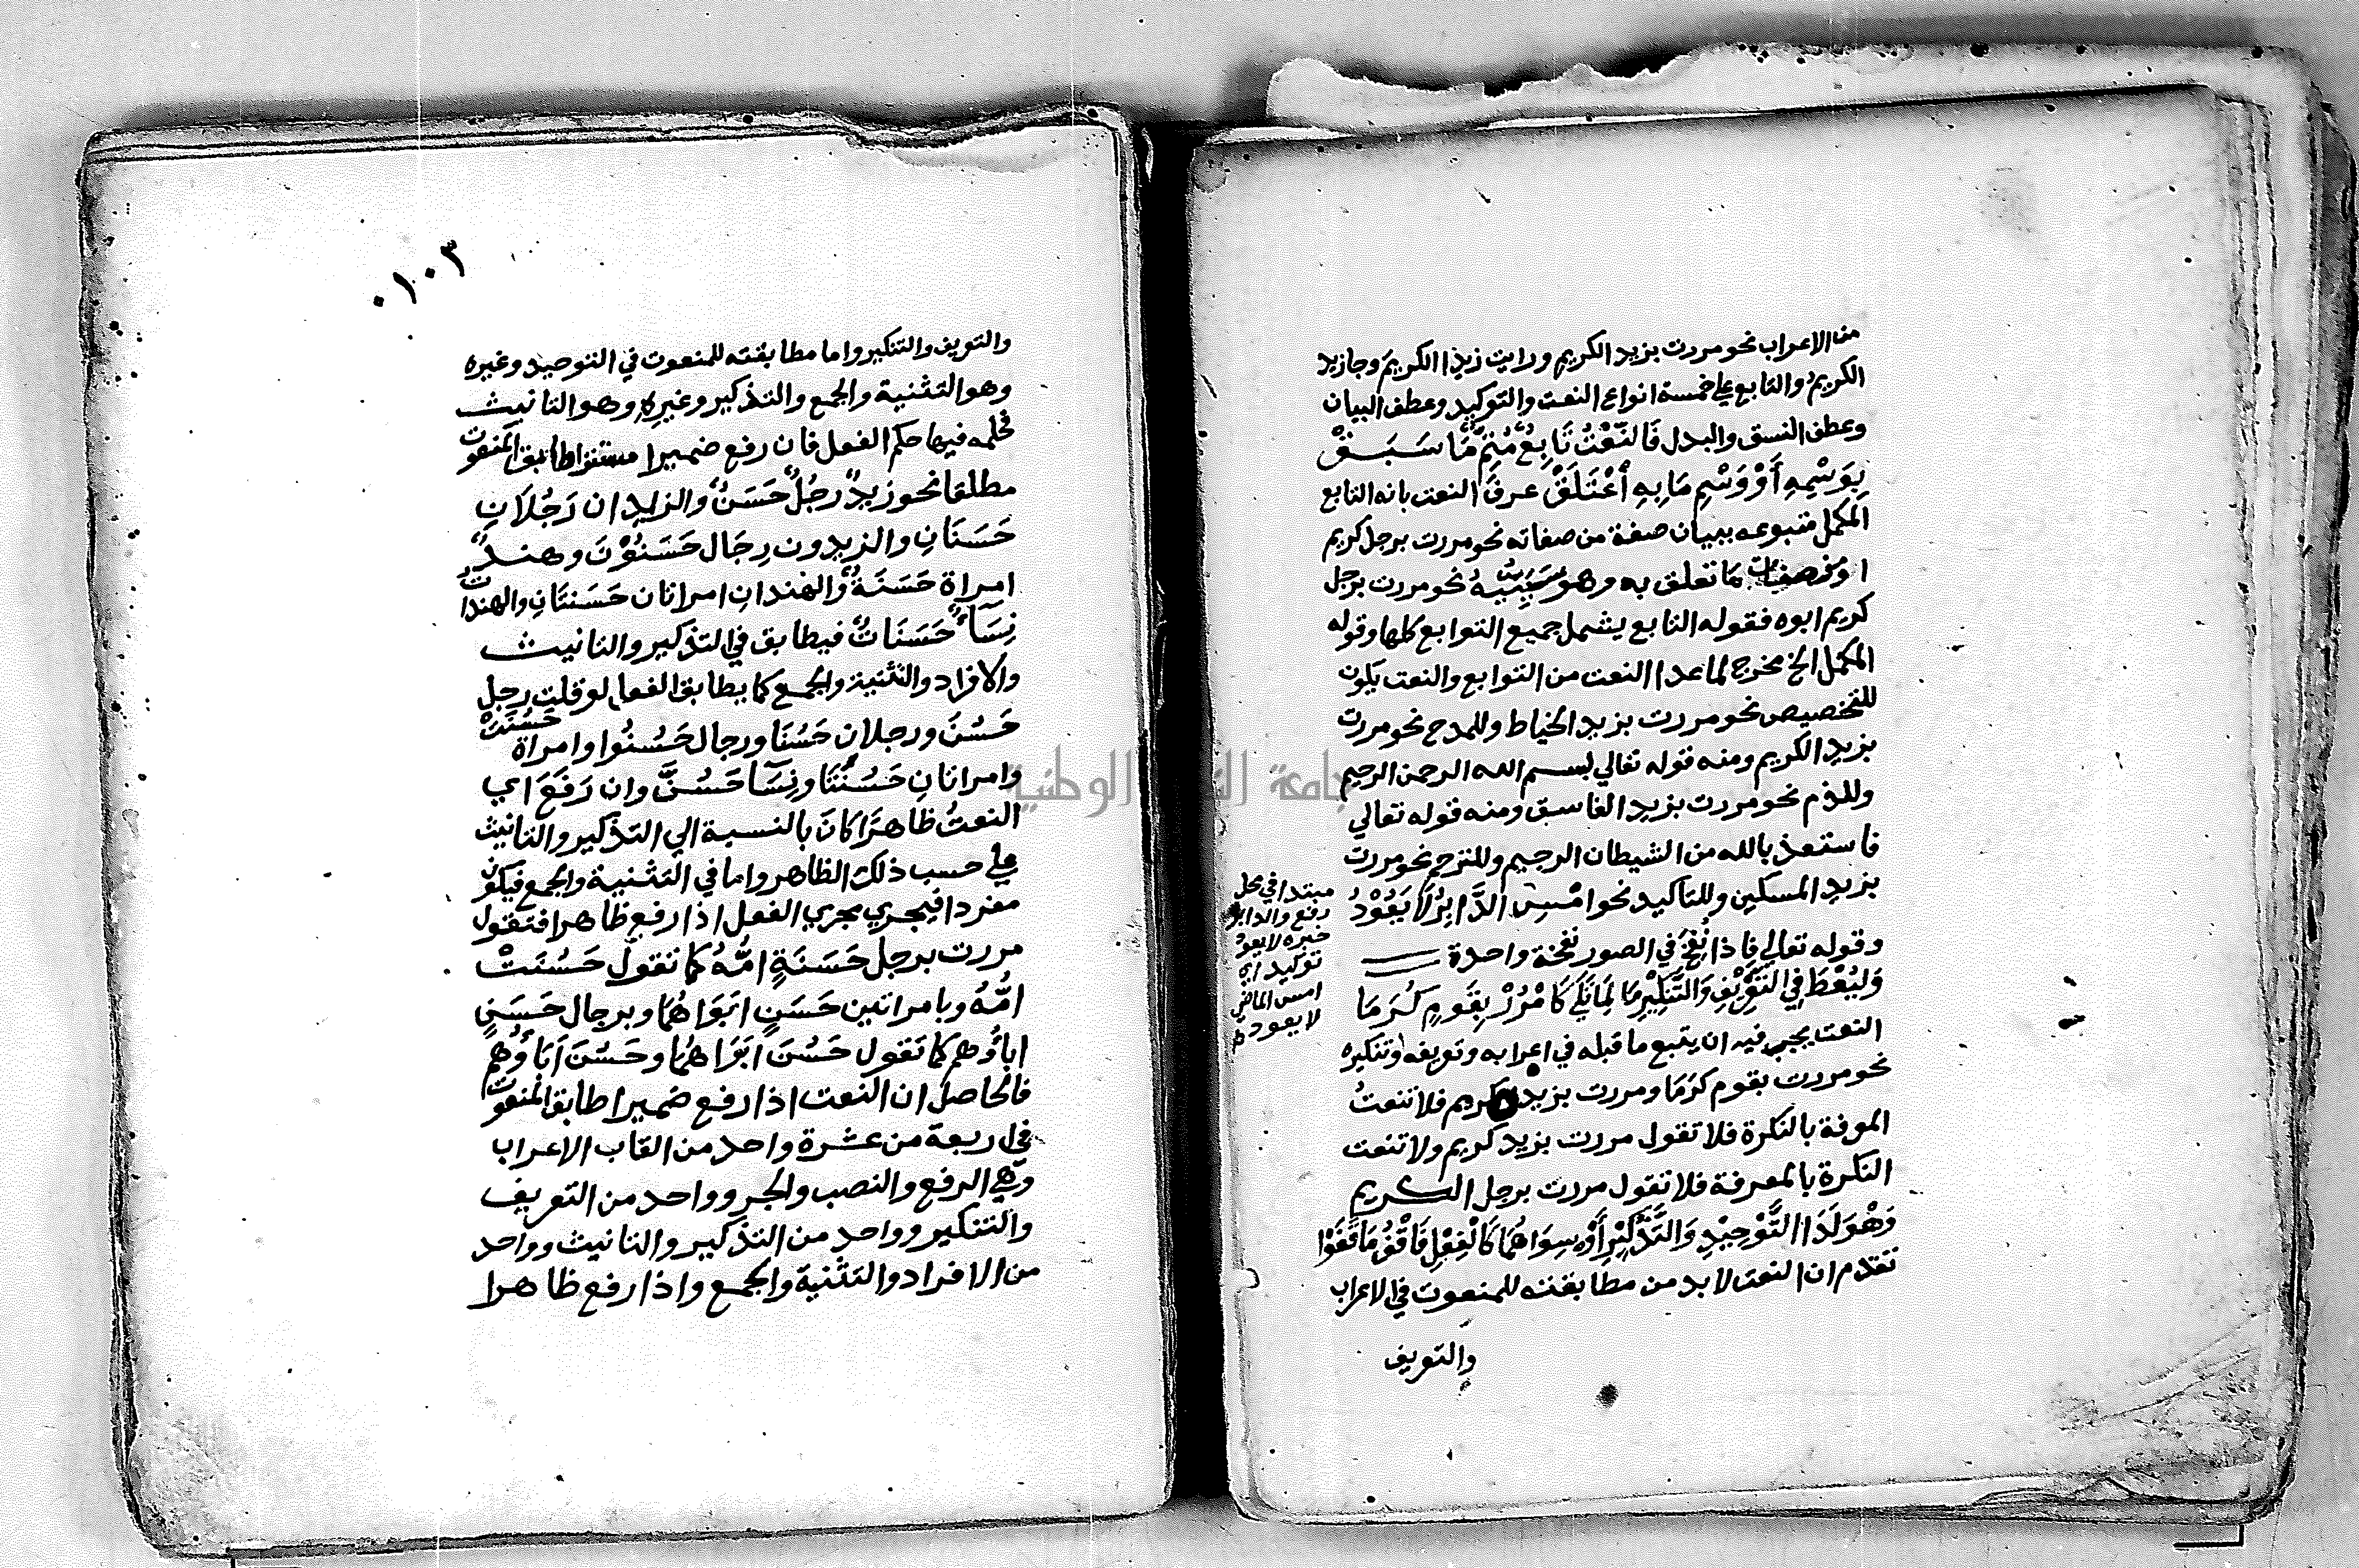 من الاعراب نحو مررت بزيد الكريم ورايت زيدا الكريمَ وجازيد
الكريمُ والتابع علي خمسة انواع النعت والتوكيد وعطف البيان
وعطف النسق والبدل فَالنَّعْتُ تَابِعٌ مُتِمٌّ مَا سَبَقْ
بِوَسْمِهِ أَوْ وَسْمِ مَا بِهِ اْعْتَلَقْ عرفَ النعت بانه التابع
المكمل متبوعه ببيان صفة من صفاته نحو مررت برجل كريم
او من صفات ما تعلق به وهو سَبَبِيُّهُ نحو مررت برجل
كريم ابوه فقوله التابع يشمل جميع التوابع كلها وقوله
المكمل الخ مخرج لما عدا النعت من التوابع والنعت يكون
للتخصيص نحو مررت بزيد الخياط وللمدح نحو مررت
بزيد الكريم ومنه قوله تعالي بسم الله الرحمن الرحيم
وللذم نحو مررت بزيد الفاسق ومنه قوله تعالي
فاستعذ بالله من الشيطان الرجيم وللترحم نحو مررت
بزيد المسكين وللتاكيد نحو امْسِ الدَّابِرُ لَا يَعُوْدُ
وقوله تعالي فاذا نُفِخَ في الصور نفخة واحدة
وَلْيُعْطَ فِي التَّعْرِيْفِ وَالتَّنْكِيْرِ مَا لِمَا تَلَي كَامْرُرْ بِقَومٍ كُرَمَا
النعت يجب فيه ان يتبع ما قبله في اعرابه وتعريفه وتنكيره
نحو مررت بقوم كرَمَا ومررت بزيد الكريم فلا تنعتُ
المعرفة بالنكرة فلا تقول مررت بزيد كريم ولا تنعت
النكرة بالمعرفة فلا تقول مررت برجل الكريم
وَهْوَ لَدَا التَّوْحِيْدِ وَالتَّذْكِيْرِ أَوْ سِوَاهُمَا كَالْفِعْلِ فَاقْفُ مَا قَفَوْا
تقدم ان النعت لا بد من مطابقته للمنعوت في الاعراب
والتعريف
مبتدا في محل
رفع والدابر
خبره لا يعود
توكيد اي
امس الماضي
لا يعود
٠١٠٣
والتعريف والتنكير واما مطابقته للمنعوت في التوحيد وغيره
وهو التثنية والجمع والتذكير وغيره وهو التانيث
فحكمه فيها حكم الفعل فان رفع ضميرا مستترا طابق المنعوت
مطلقا نحو زيدٌ رجُلٌ حَسَنٌ والزيدان رَجُلَانِ
حَسَنَانِ والزيدون رِجَال حَسَنُوْنَ وهندٌ
امراة حَسَنَةٌ والهندانِ امراتان حَسَنتَانِ والهنداتُ
نِسَآءٌ حَسَنَاتٌ فيطابق في التذكير والتانيث
والافراد والتثنية والجمع كما يطابق الفعل لو قلت رجل
حَسُنَ ورجلان حَسُنَا ورجال حَسُنُوا وامراة حَسُنَتْ
وامراتانِ حَسُنَتَا ونِسَآ حَسُنَّ وان رَفَعَ اي
النعتُ ظاهرًا كانَ بالنسبة الي التذكير والتانيث
علي حسب ذلك الظاهر واما في التثنية والجمع فيكون
مفردا فيجري مجري الفعل اذا رفع ظاهرا فتقول
مررت برجل حَسَنَةٍ امُّهُ كما تقول حَسُنَتْ
امُّهُ وبامراتين حَسَنٍ ابَوَاهُمَا وبرجال حَسَنٍ
اباؤهم كما تقول حَسُنَ ابَوَاهُمَا وحَسُنَ آبَاؤُهُم
فالحاصل ان النعت اذا رفع ضميرا طابق المنعوت
في اربعة من عشرة واحد من القاب الاعراب
وهي الرفع والنصب والجر وواحد من التعريف
والتنكير وواحد من التذكير والتانيث وواحد
من الافراد والتثنية والجمع واذا رفع ظاهرا